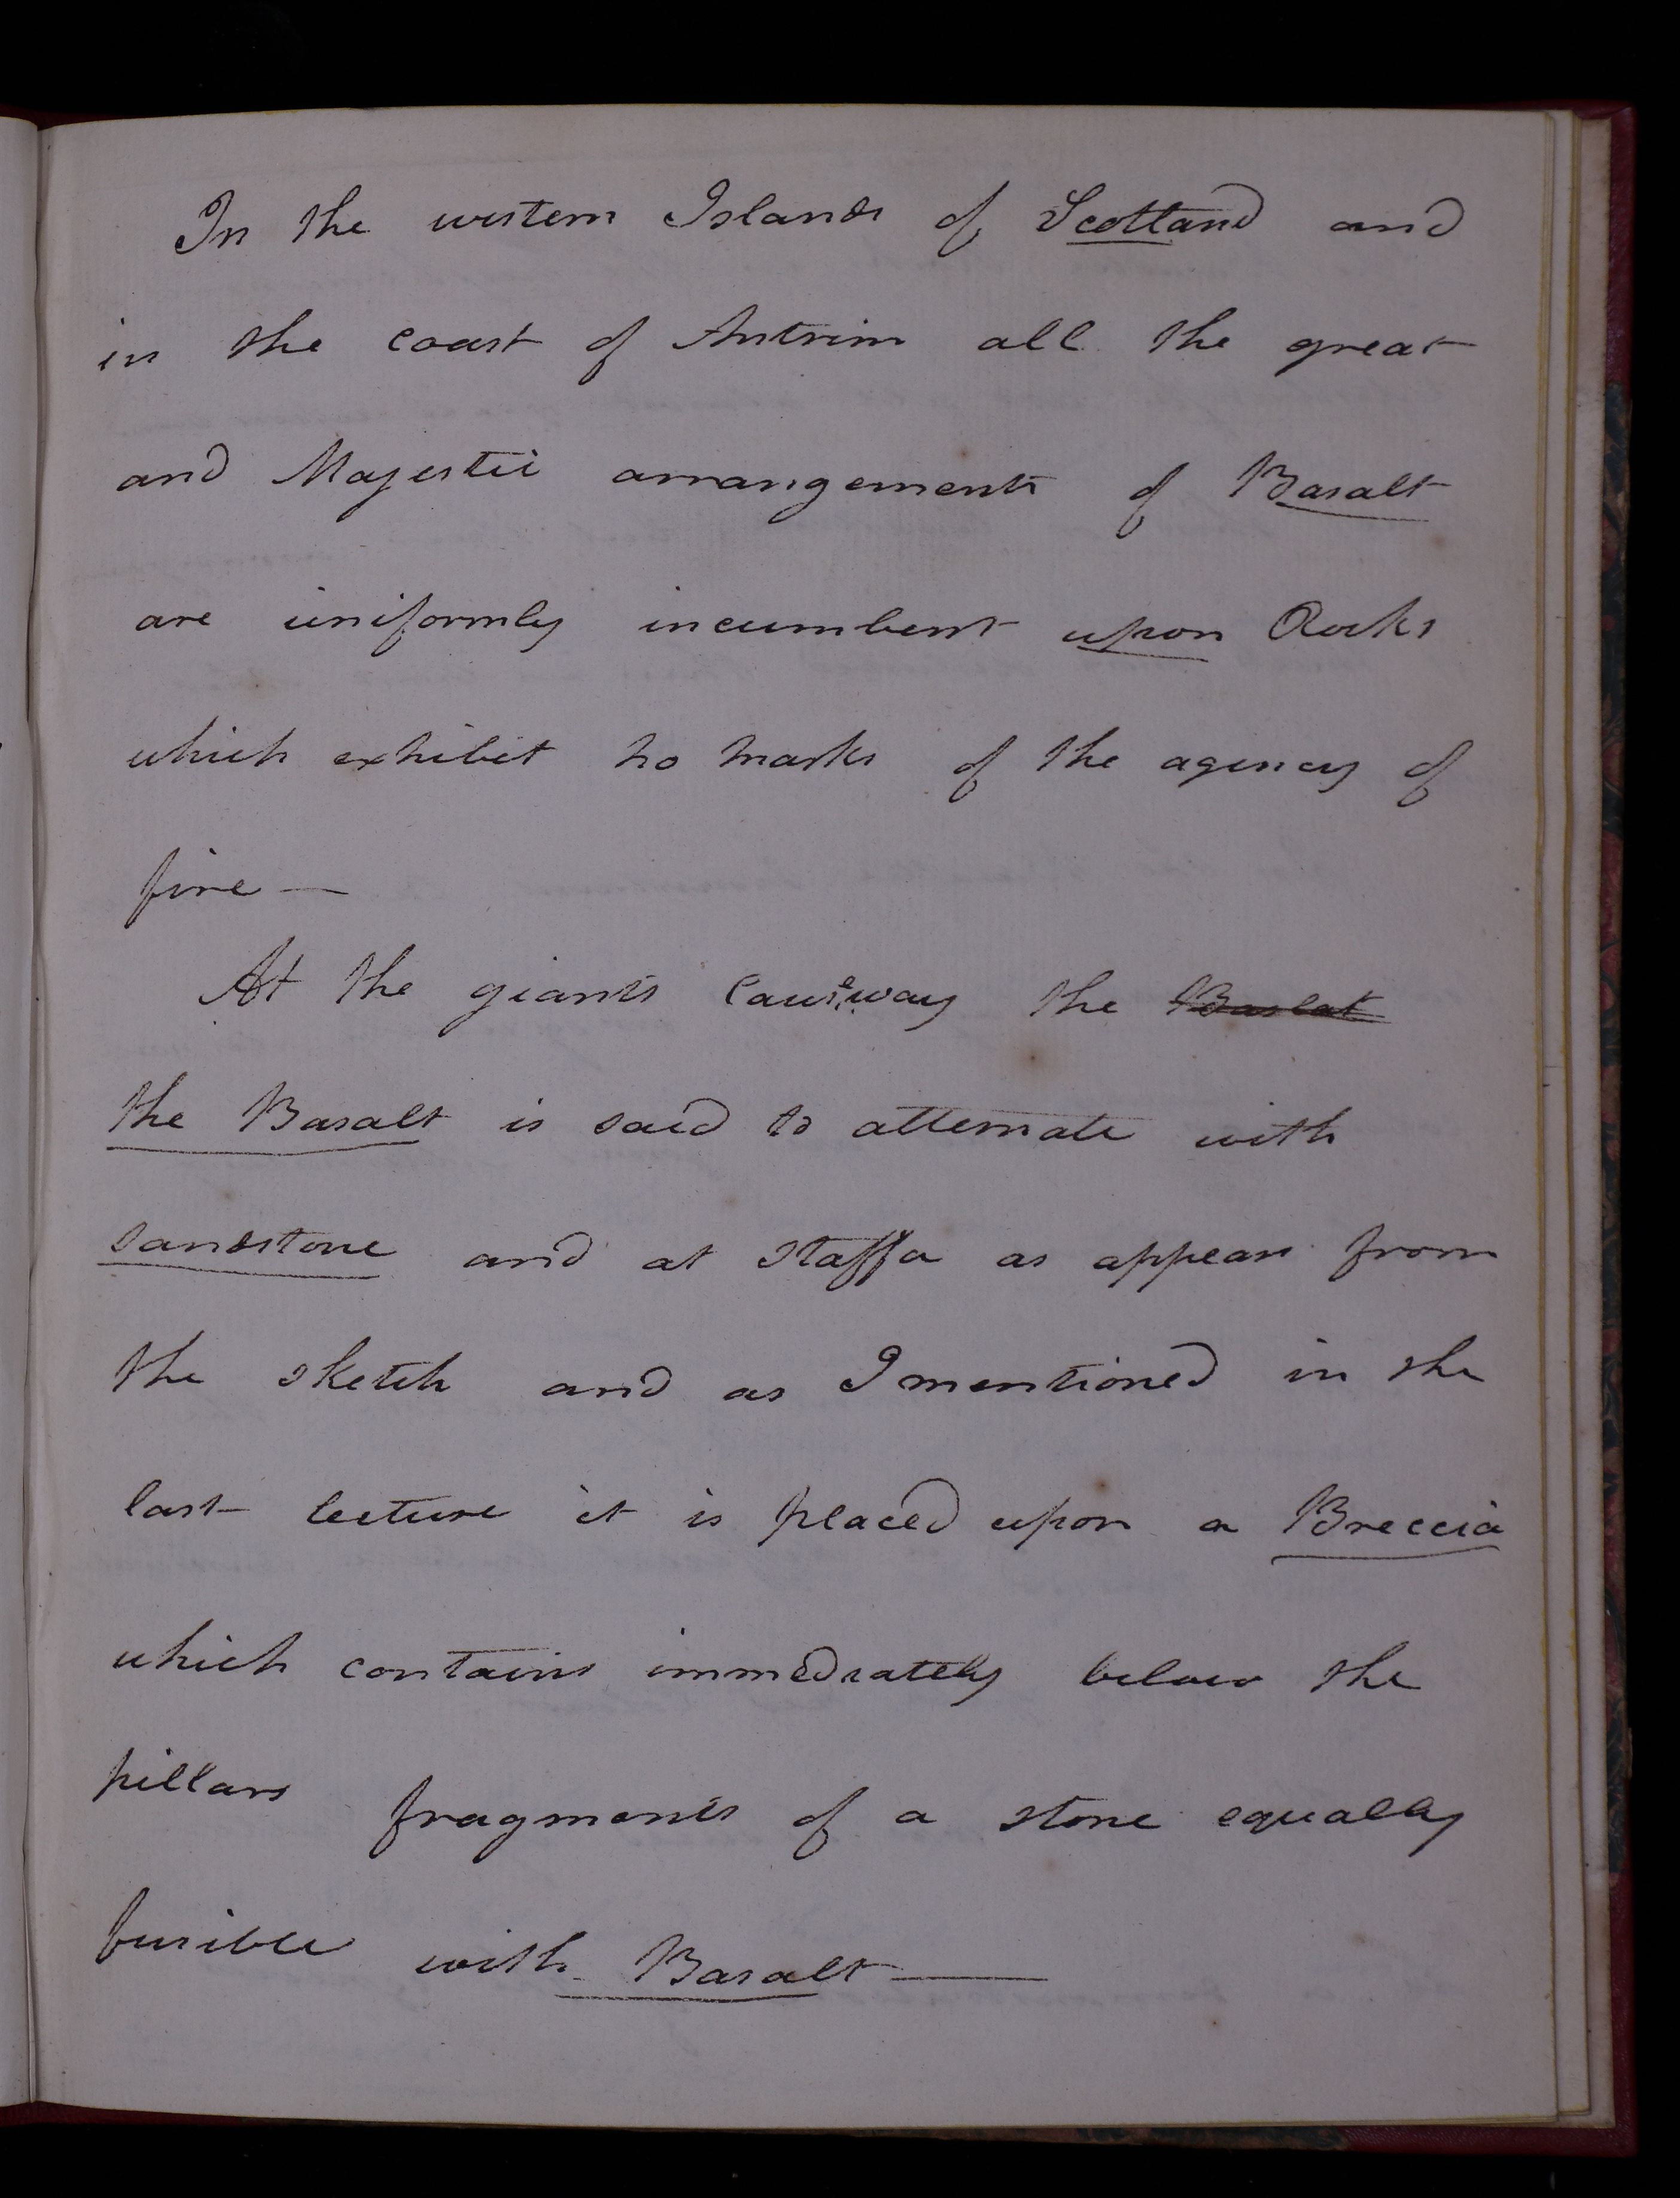 In the western Islands of Scotland and
in the coast of Antrim all the great
and Majestic arrangements of Basalt
are uniformly incumbent upon Rocks
which exhibit no marks of the agency of
fire —
At the giants Causeway the Baslat
the Basalt is said to alternate with
sandstone and at Staffa as appears from
the sketch and as I mentioned in the
last lecture it is placed upon a Breccia
which contains immediately below the
pillars fragments of a stone equally
fusible with Basalt —